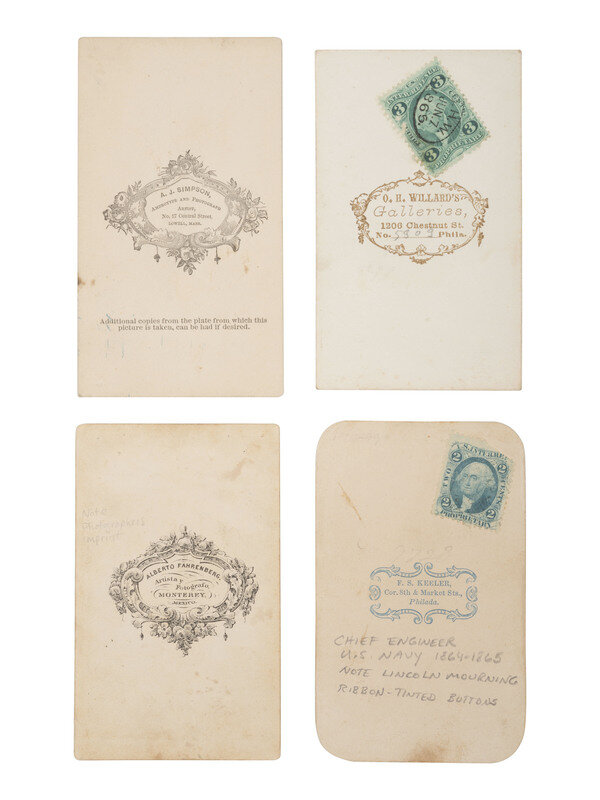 A. J. SIMPSON,
AMBROTYPE AND PHOTOGRAPH
ARTIST,
No. 17 Central Street,
LOWELL, MASS.
Additional copies from the plate from which this
picture is taken, can be had if desired.
3
3
3
3
JUN 7
1865
O. H. WILLARD'S
Galleries,
1206 Chestnut St.
No. Phila.
Note
Photographers
imprint
ALBERTO FAHRENBERG,
Artista y
Fotografo,
MONTEREY,
MEXICO
U.S. INTER. REV.
TWO CENTS
2
2
PROPRIETARY
F. S. KEELER,
Cor. 8th & Market Sts.,
Philada.
CHIEF ENGINEER
U.S. NAVY 1864-1865
NOTE LINCOLN MOURNING
RIBBON - TINTED BUTTONS